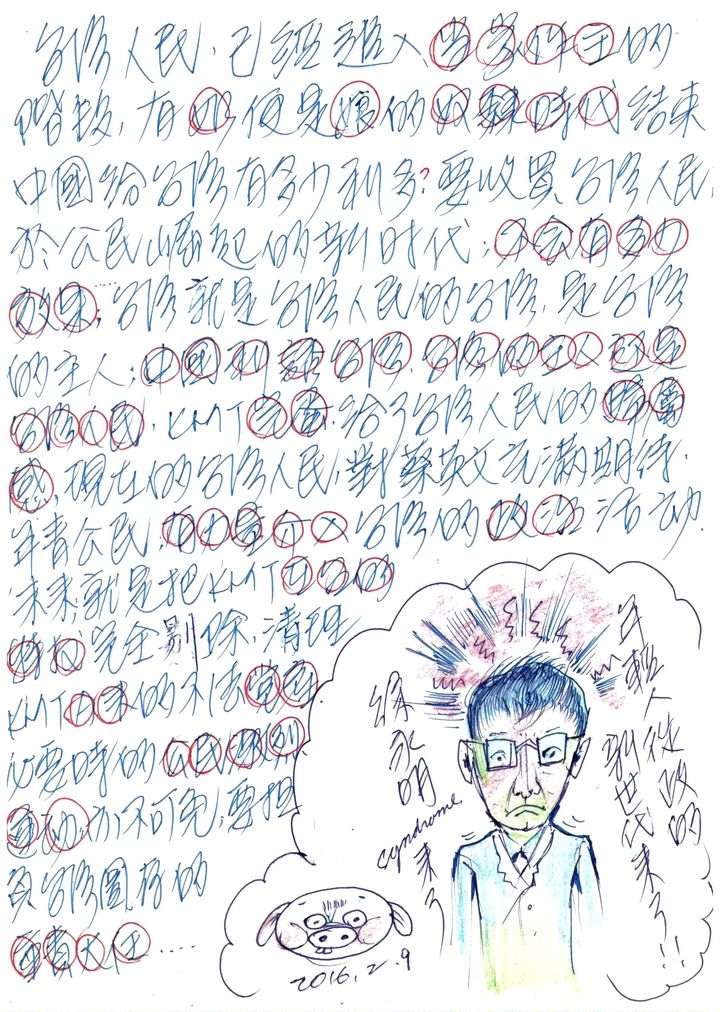 台灣人民,已經進入當家作主的
階段,有奶便是娘的奴隸時代結束
中國給台灣有多少利多?要收買台灣人民,
於公民崛起的新時代;不會有多少
效果;台灣就是台灣人民的台灣,是台灣
的主人;中國利誘台灣,台灣的主人還是
台灣人民,KMT完蛋,給了台灣人民的
感,現在的台灣人民,對蔡英文充滿期待,
年青公民,有大量介入台灣的政治活動.
未來,就是把KMT
完全剔除,清理
KMT 的不法黨產
必要時的公民
運動,亦不可免,要担
負台灣圖存的
重責大任.....
年輕人從政的
新世代來了!!
徐永明
syndrome
來了
2016.2.9